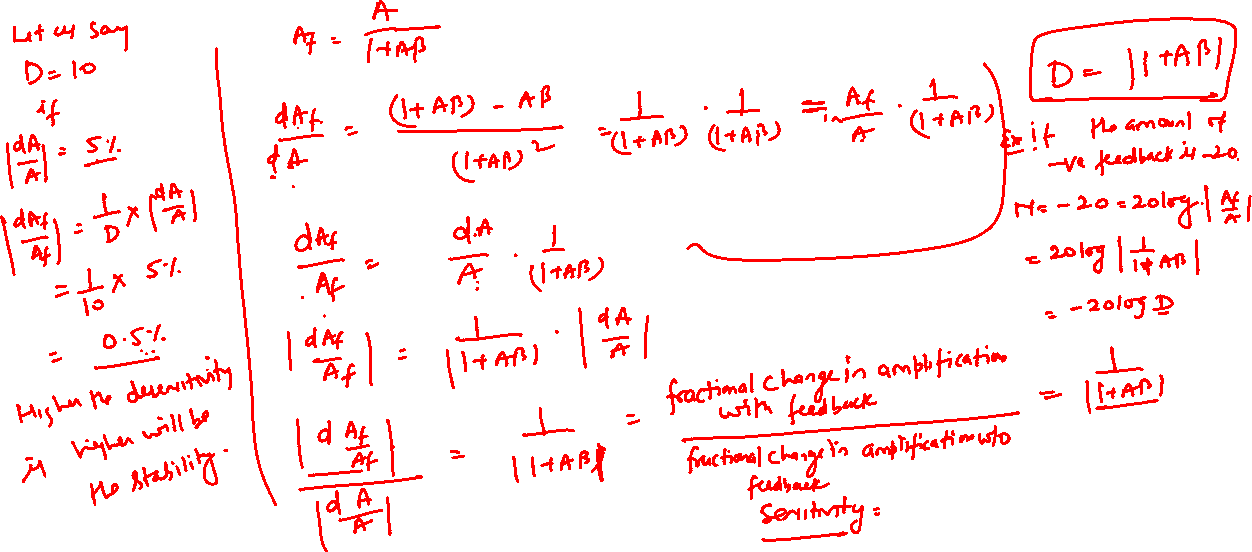 Let us say
D = 10
if
|dA/A| = 5%
|dAf/Af| = 1/D × |dA/A|
= 1/10 × 5%
= 0.5%
Higher the desensitivity
is higher will be
the stability.
Af = A/(1+Aβ)
dAf/dA = ((1+Aβ) - Aβ)/(1+Aβ)² = 1/(1+Aβ) · 1/(1+Aβ) = Af/A · 1/(1+Aβ)
dAf/Af = dA/A · 1/(1+Aβ)
|dAf/Af| = 1/|1+Aβ| · |dA/A|
|dAf/Af|/|dA/A| = 1/|1+Aβ| = fractional change in amplification with feedback/fractional change in amplification w/o feedback = 1/|1+Aβ|
Sensitivity =
D = |1+Aβ|
Ex if the amount of
-ve feedback is -20.
N = -20 = 20log |Af/A|
= 20log |1/1+Aβ|
= -20log D